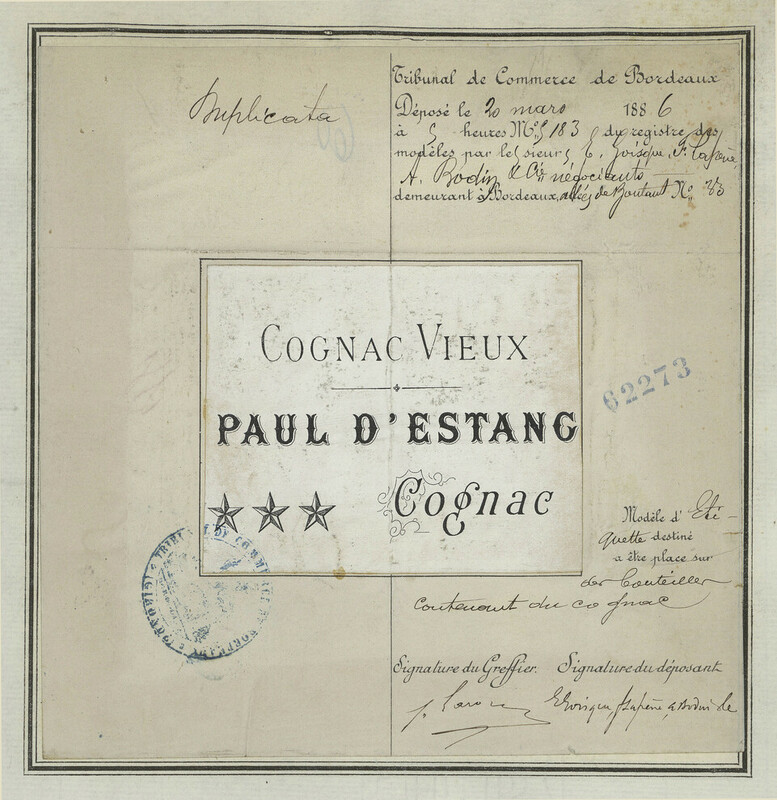 Duplicata
Tribunal de Commerce de Bordeaux
Déposé le 20 mars 1886
à 5 heures No 5183 du registre des
modèles par les sieurs E. Voisque, F. Lapène,
A. Bodin & Cie négociants
demeurant à Bordeaux, allées de Boutaut No 23
COGNAC VIEUX
PAUL D'ESTANG
Cognac
62273
Modèle d'Eti-
quette destiné
a être place sur
des bouteilles
contenant du cognac
TRIBUNAL DE COMMERCE DE BORDEAUX
Signature du Greffier. Signature du déposant